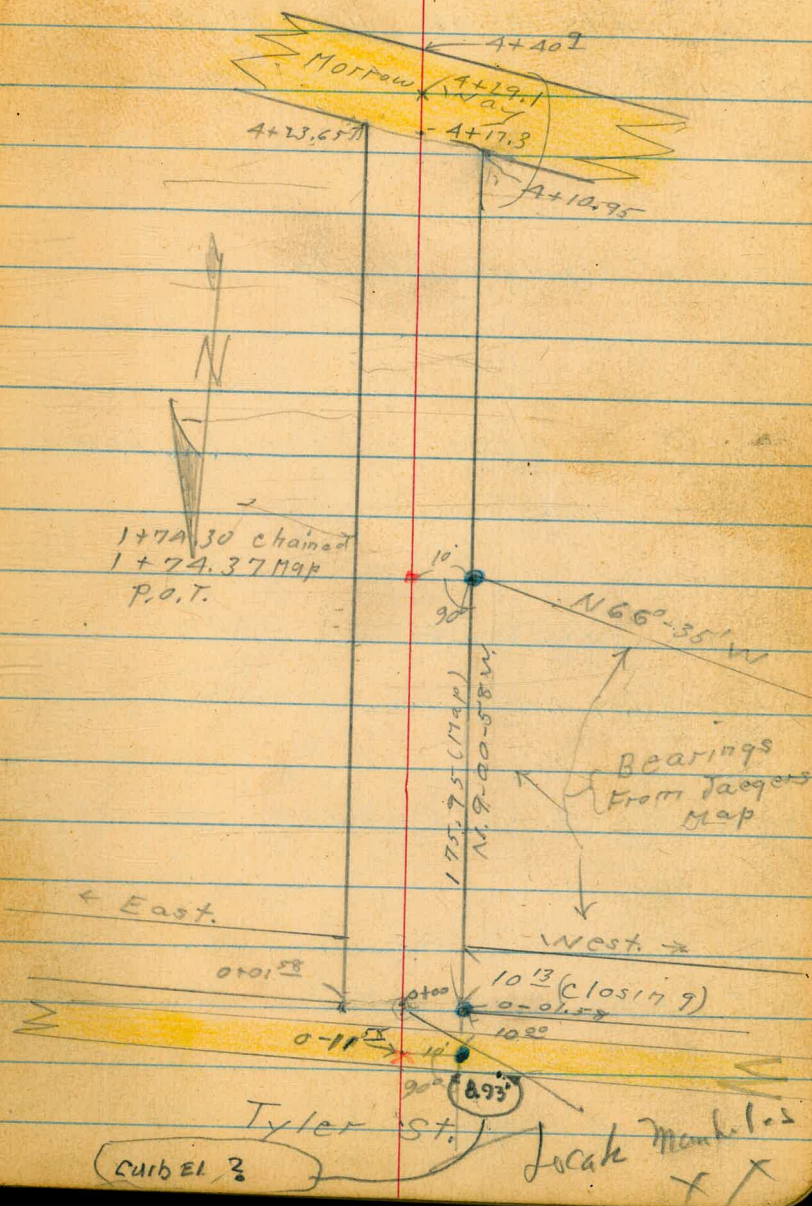 4+40⁹
Morrow Way
4+29.1
4+23.65
4+17.3
4+10.95
N
1+74.30 chained
1+74.37 Map
P.O.T.
10'
90°
N66°-35'W
175.95 (Map)
N.9-00-58W.
Bearings
From Jaegers
Map
← East.
West. →
0+01⁵⁸
10¹³ (closing)
0+00
0-01.58
10⁰⁰
0-11⁵⁸
10'
90°
8.93'
Tyler St.
Locate Manholes
Curb El ?